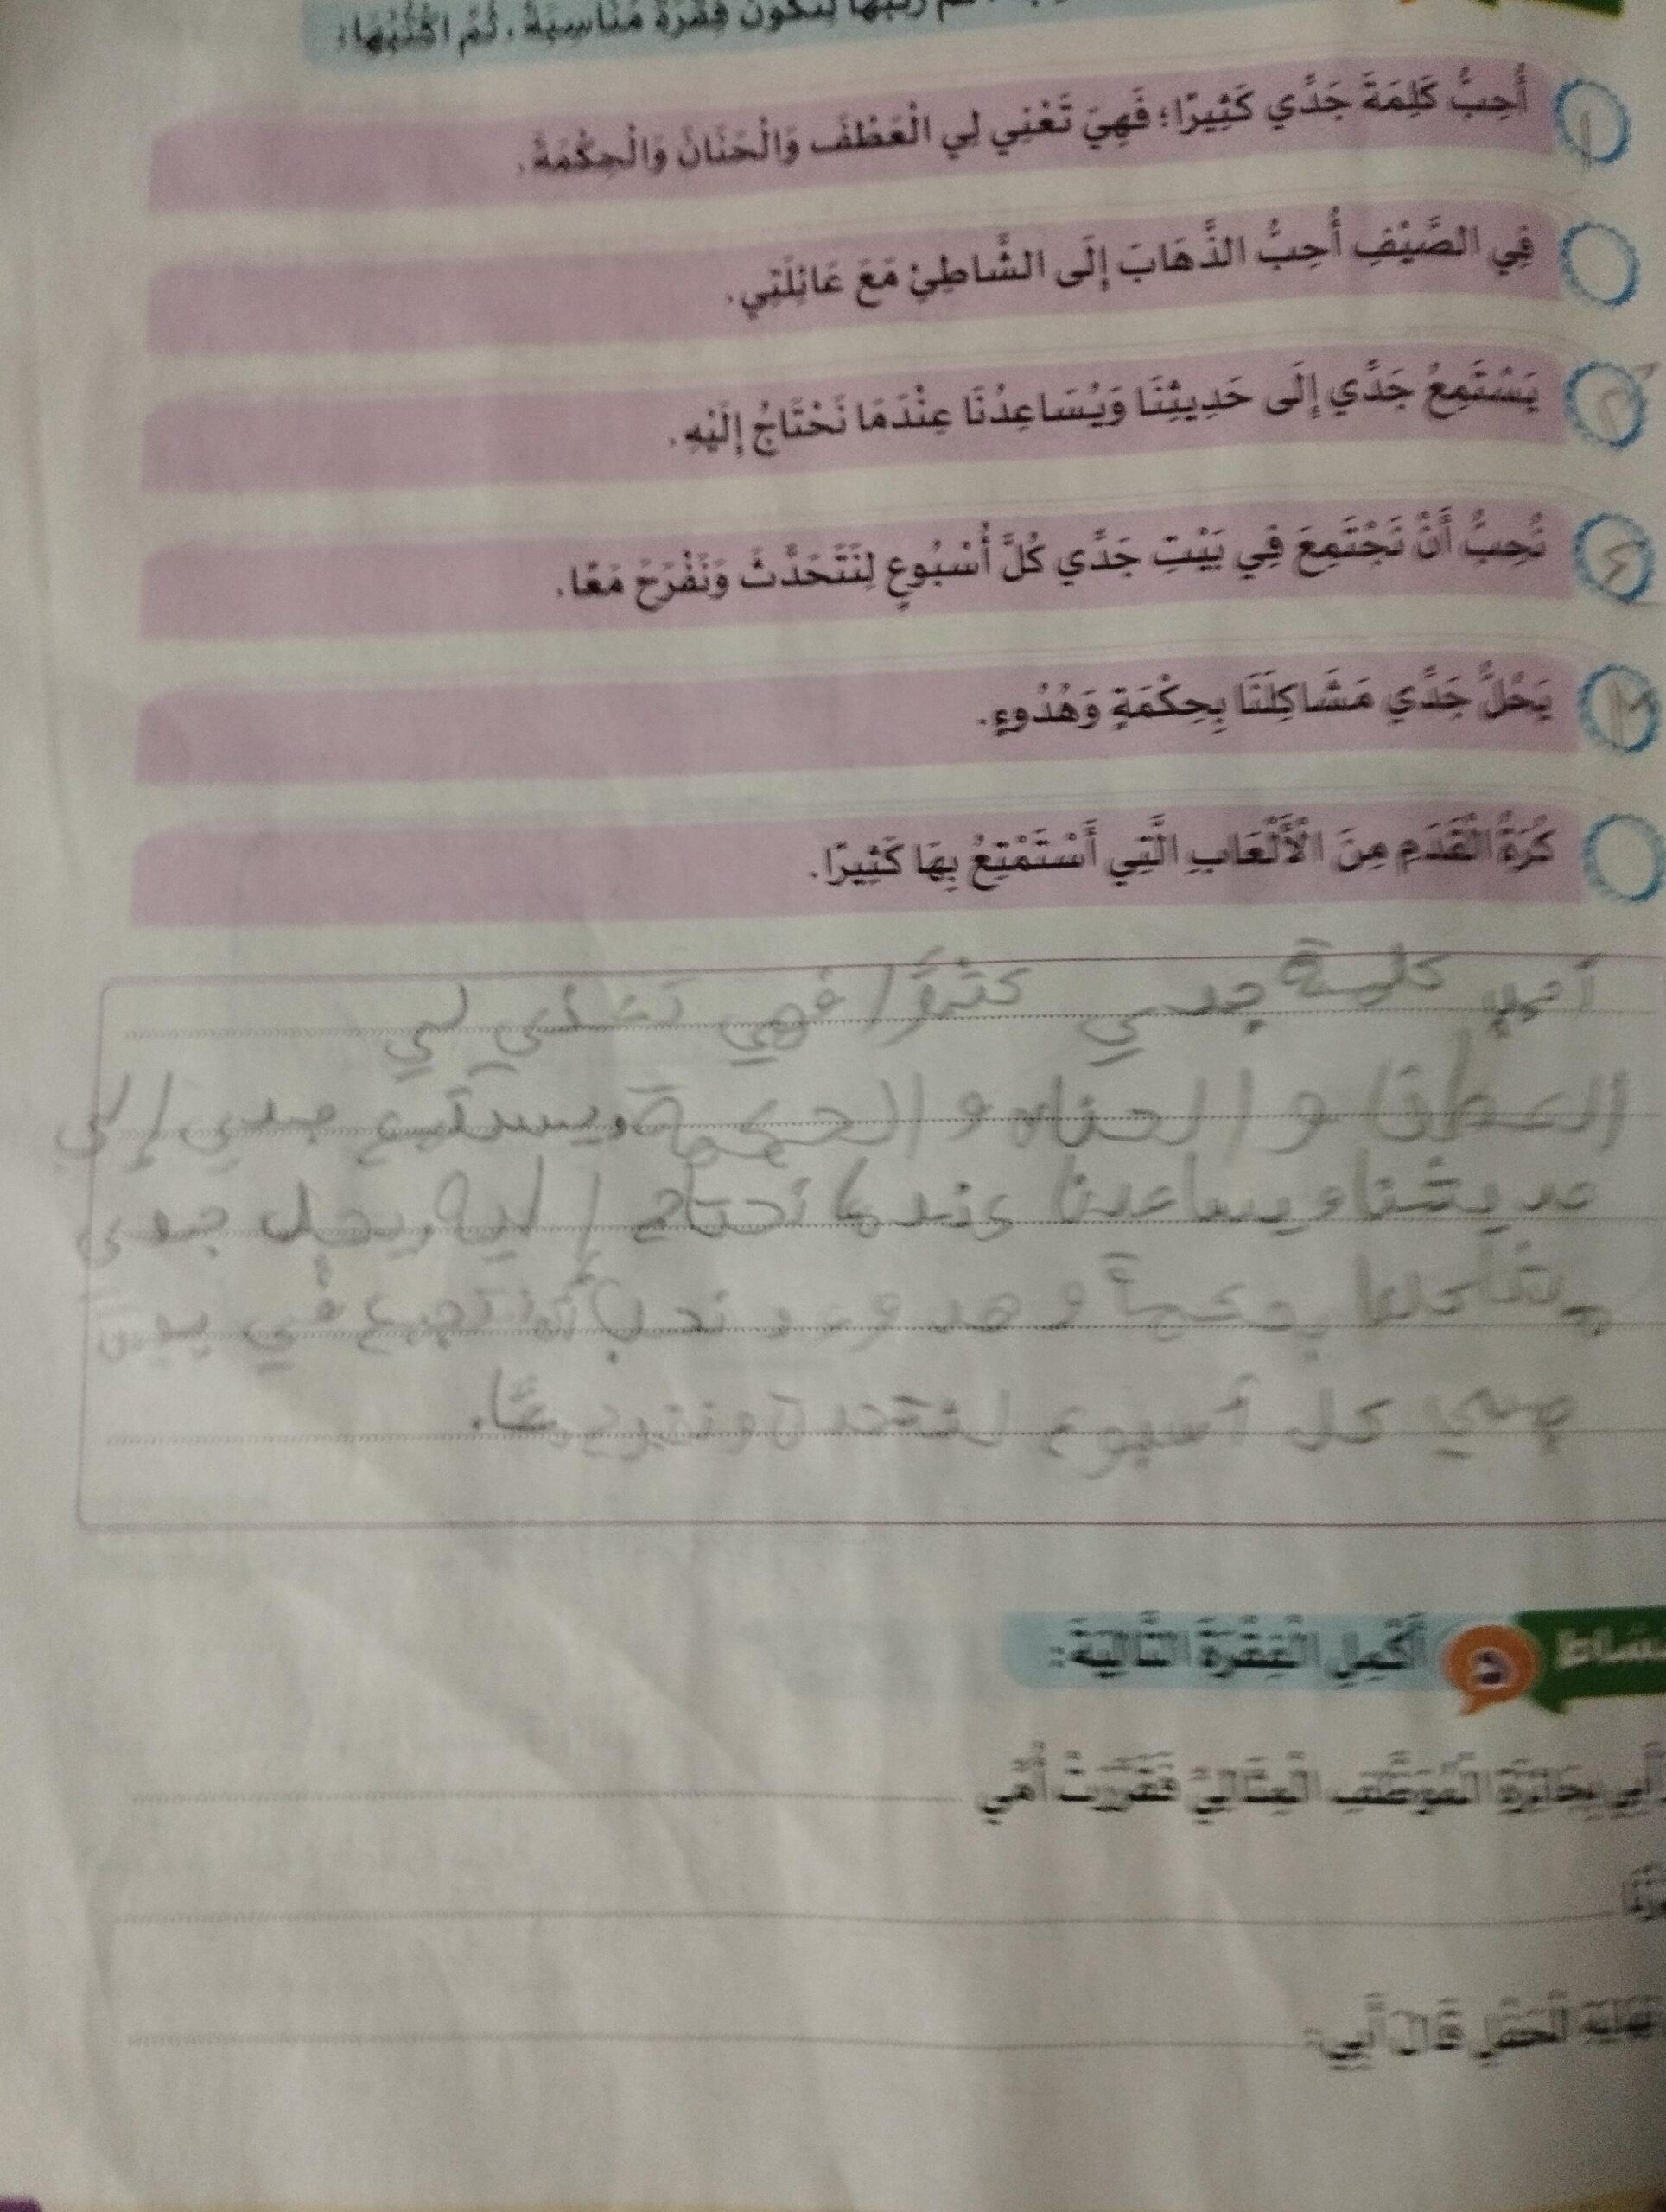 رَتِّبْهَا لِتُكَوِّنَ فِقْرَةً مُنَاسِبَةً، ثُمَّ اكْتُبْهَا:
١ أُحِبُّ كَلِمَةَ جَدِّي كَثِيرًا؛ فَهِيَ تَعْنِي لِي الْعَطْفَ وَالْحَنَانَ وَالْحِكْمَةَ.
فِي الصَّيْفِ أُحِبُّ الذَّهَابَ إِلَى الشَّاطِئِ مَعَ عَائِلَتِي.
٢ يَسْتَمِعُ جَدِّي إِلَى حَدِيثِنَا وَيُسَاعِدُنَا عِنْدَمَا نَحْتَاجُ إِلَيْهِ.
٤ نُحِبُّ أَنْ نَجْتَمِعَ فِي بَيْتِ جَدِّي كُلَّ أُسْبُوعٍ لِنَتَحَدَّثَ وَنَفْرَحَ مَعًا.
يَحُلُّ جَدِّي مَشَاكِلَنَا بِحِكْمَةٍ وَهُدُوءٍ.
كُرَةُ الْقَدَمِ مِنَ الْأَلْعَابِ الَّتِي أَسْتَمْتِعُ بِهَا كَثِيرًا.
أحب كلمة جدي كثيرًا فهي تعني لي
العطف و الحنان و الحكمة ويستمع جدي إلى
حديثنا ويساعدنا عندما نحتاج إلية ويحل جدي
و هدوء و نحب أن نجتمع في بيت
جدي كل أسبوع لنتحدث معًا.
نشاط ٥ أَكْمِلِ الْفِقْرَةَ التَّالِيَةَ:
أَبِي بِجَائِزَةِ الْمُوَظَّفِ الْمِثَالِيِّ فَقَرَّرَتْ أُمِّي
الْحَفْلِ قَالَ أَبِي: